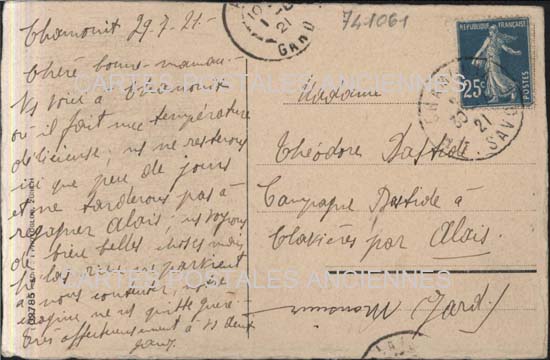 Chamonix 29-7-21-
Chère bonne-maman-
Ns voici à Chamonix
où il fait une température
délicieuse; ns ne resterons
ici que peu de jours
et ne tarderons pas à
regagner Alais; ns voyons
de bien belles choses mais
hélas rien ne parvient
à nous
imagine ne ns quitte guère.
Très affectueusement à vs deux
741061
RÉPUBLIQUE FRANÇAISE
25c
POSTES
CHAM
21
SAVOIE
21
GARD
Madame
Théodore Bastide
Campagne Bastide à
Clavières par Alais.
Gard
CARTES POSTALES ANCIENNES
CARTES POSTALES ANCIENNES